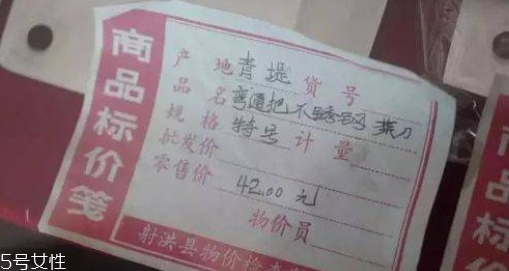 商品标价笺
产地 青堤 货号
品名 弯通把不锈钢菜刀
规格 特号 计量
批发价
零售价 42.00 元
物价员
射洪县物价检查
品标
5号女性